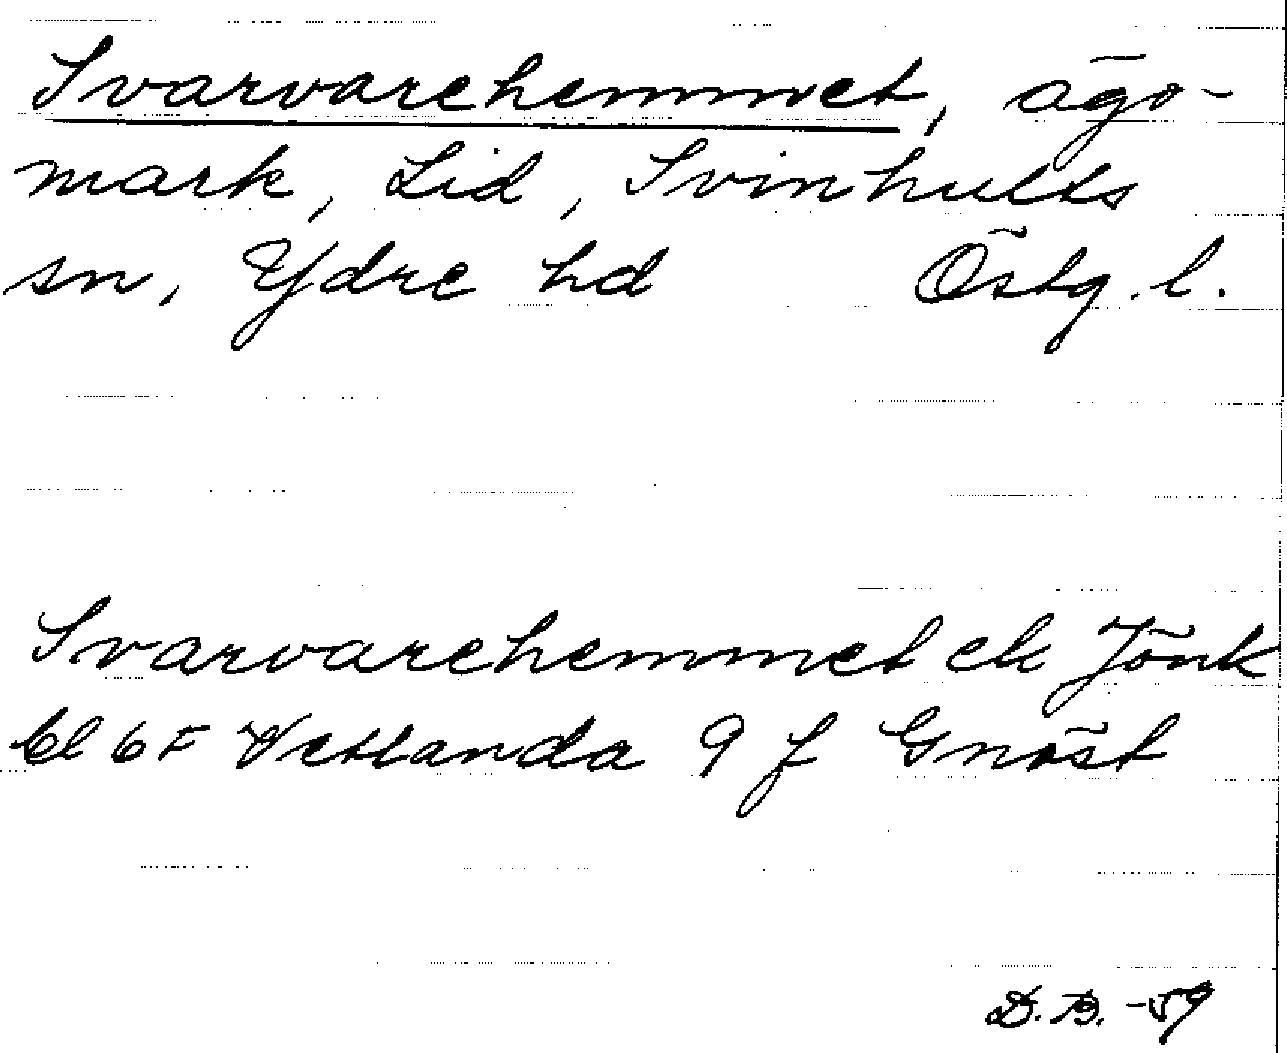 Svarvarehemmet, ägo-
mark, Lid, Svinhults
sn, Ydre hd Östg. l.
Svarvarehemmet ek Jönk
bl 6 F Vetlanda 9 f Gnöst
D. B. -59